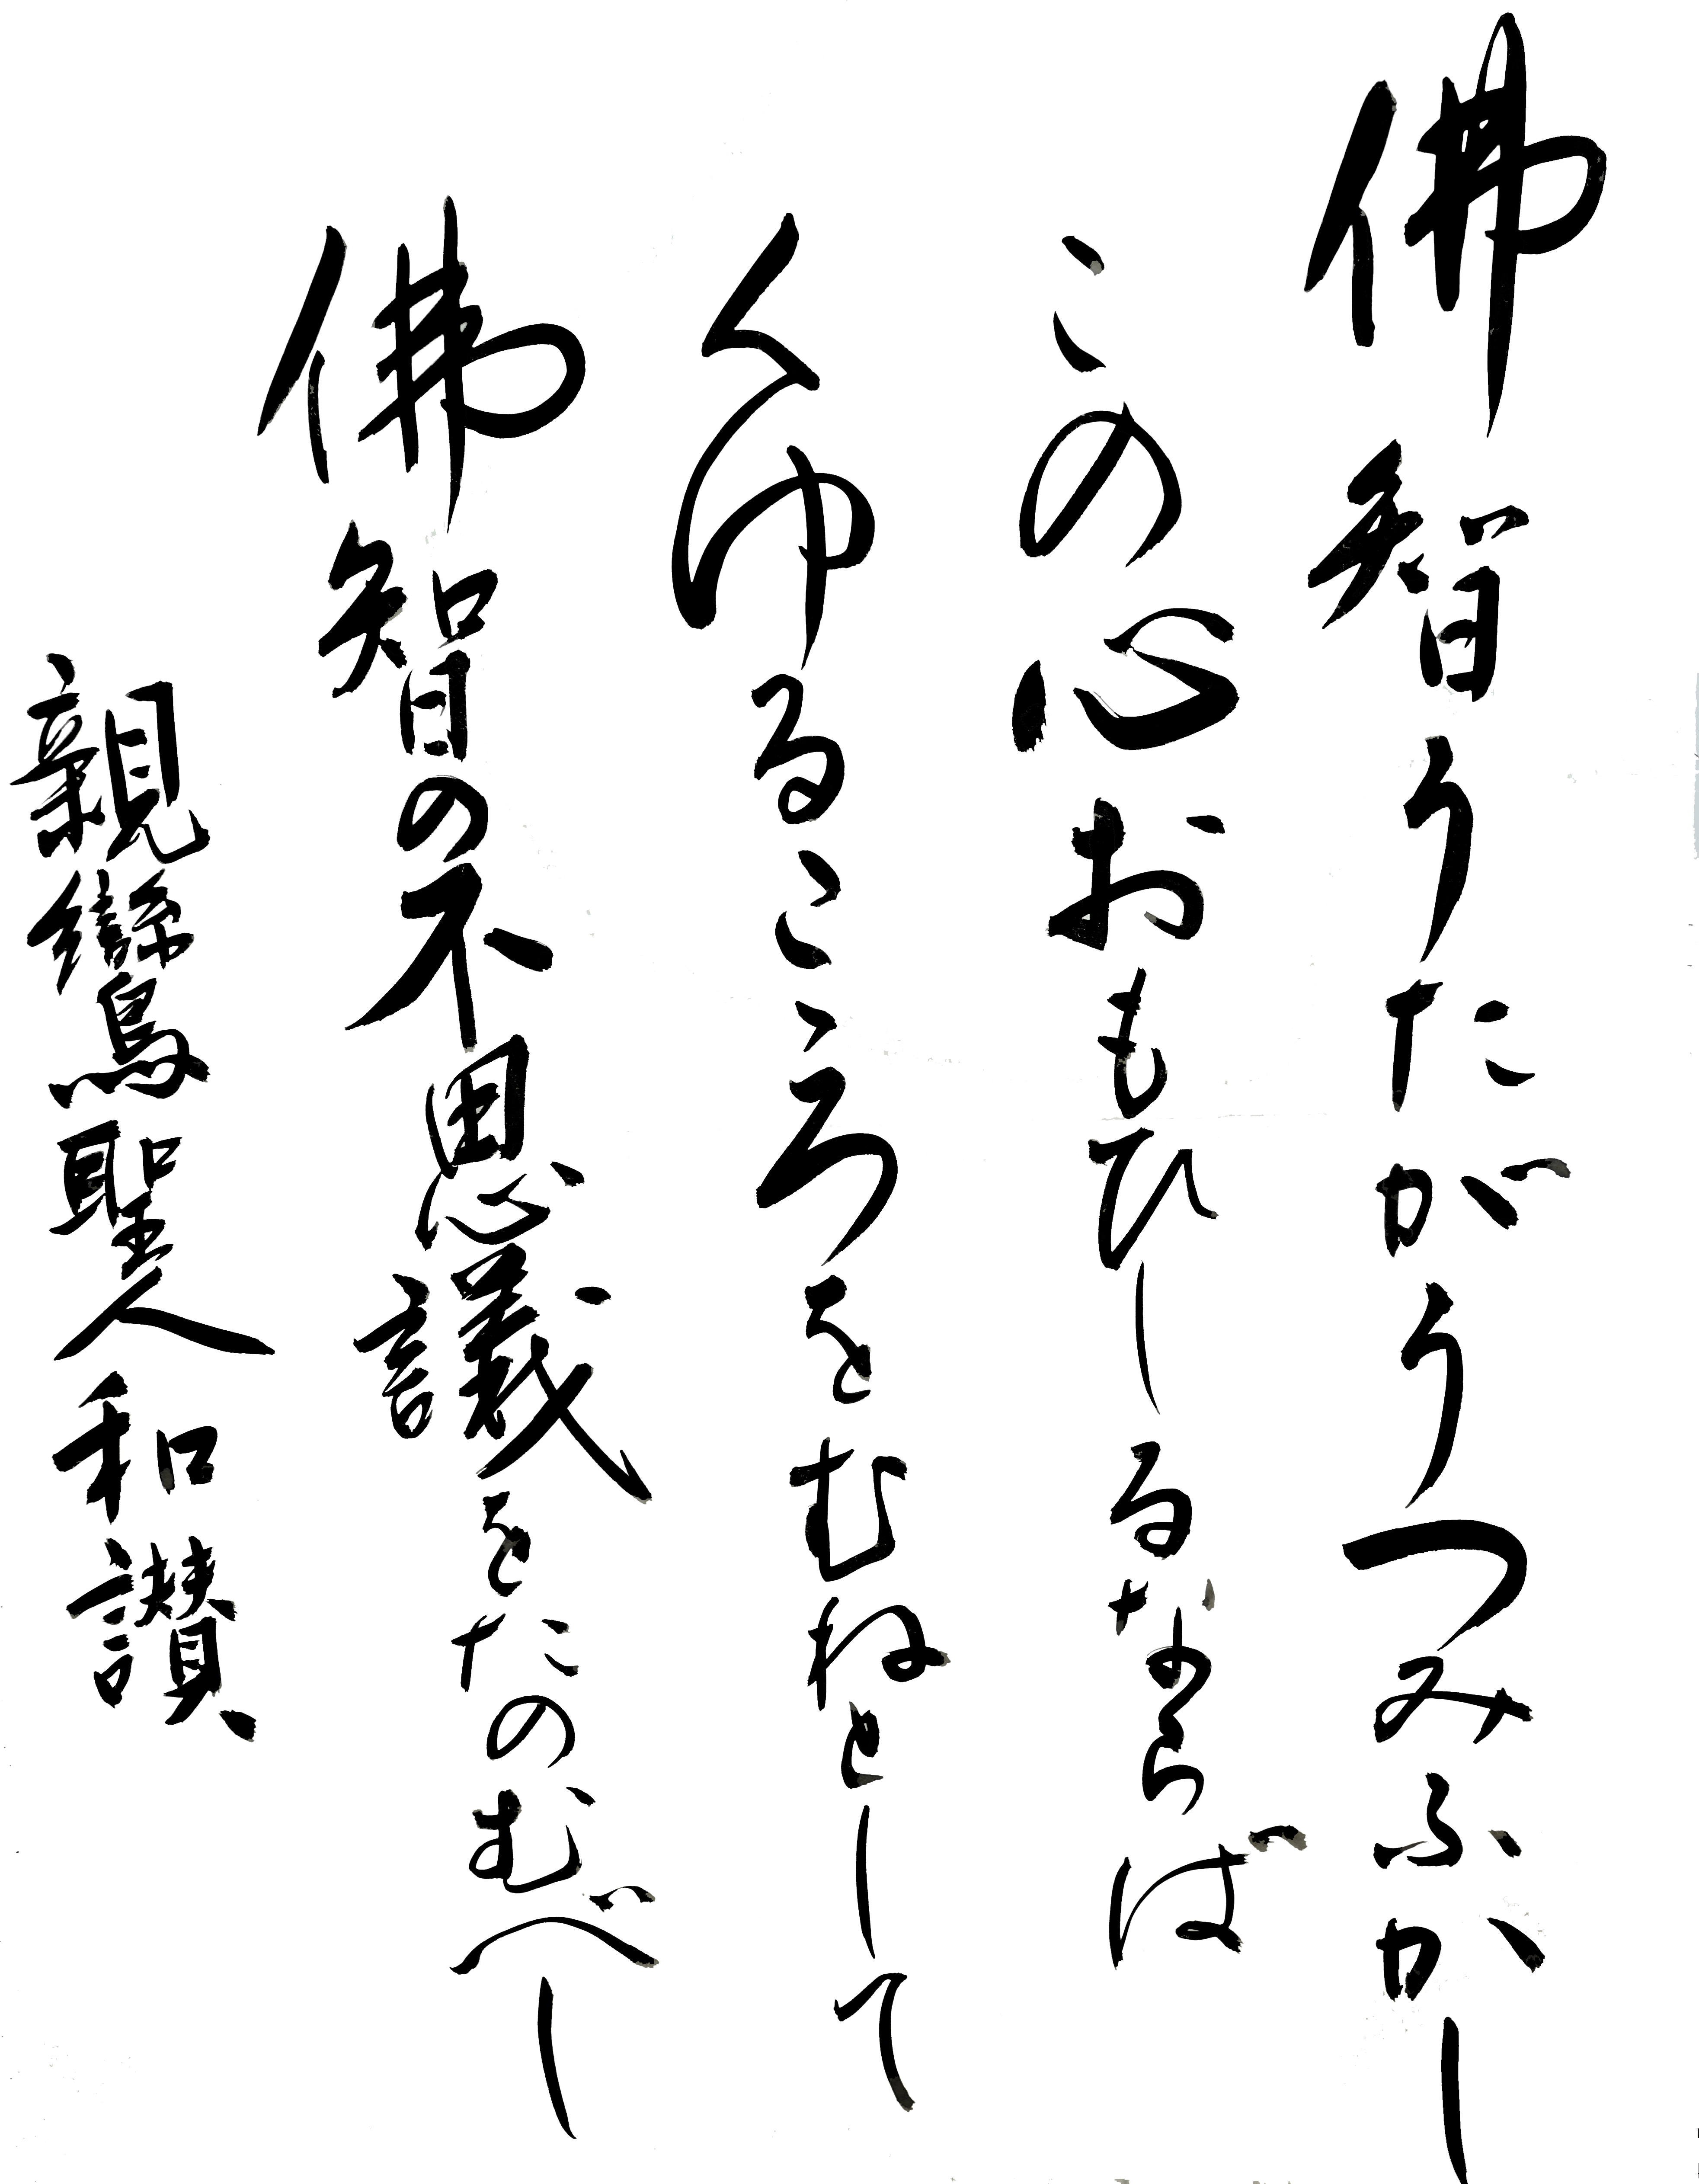 佛智うたがうつみふかし
この心おもひしるならば
くゆるこころをむねとして
佛智の不思議をたのむべし
親鸞聖人和讃